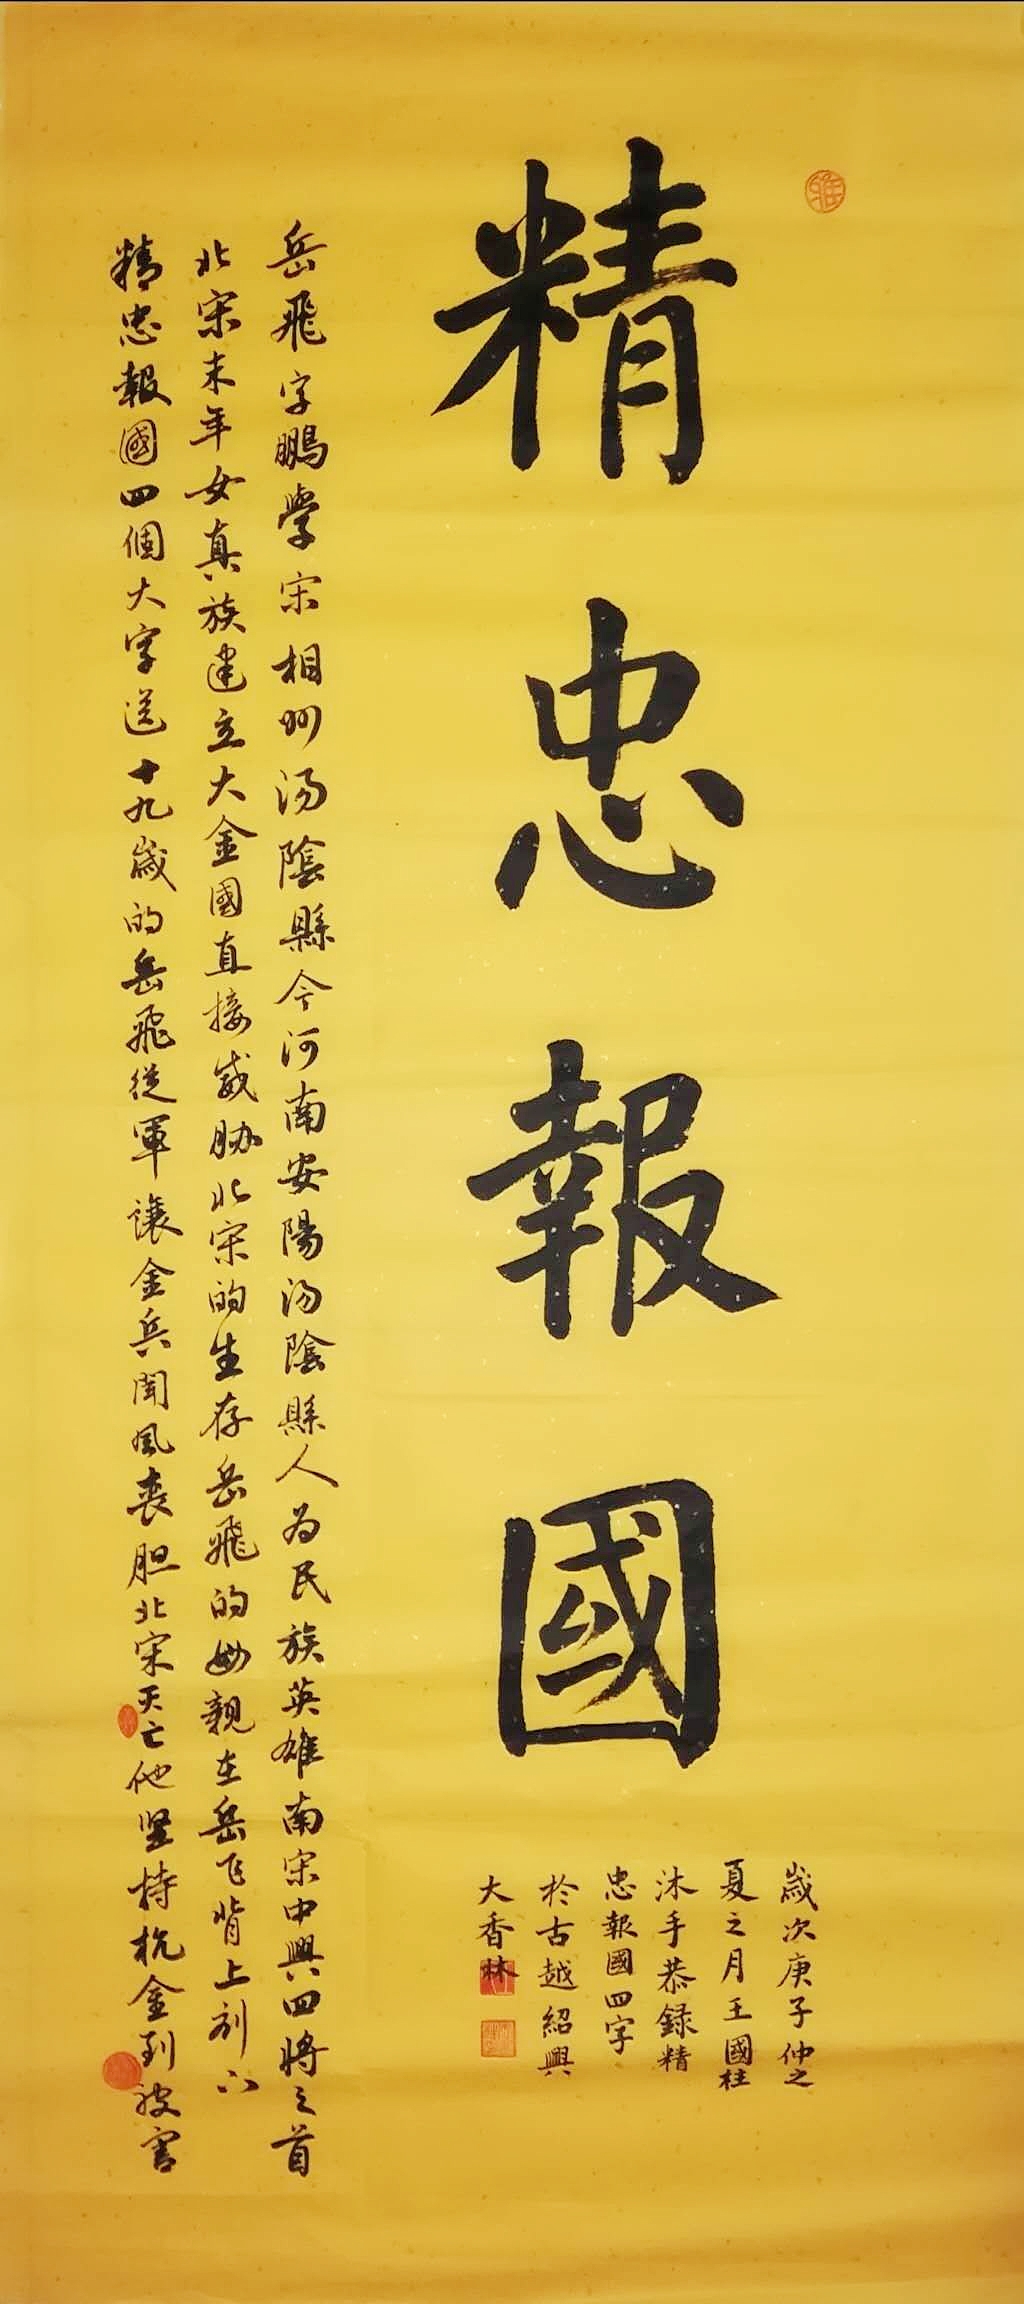 精忠報國
歲次庚子仲之
夏之月王國柱
沐手恭録精
忠報國四字
於古越紹興
大香林
岳飛字鵬學宋相州湯陰縣今河南安陽湯陰縣人为民族英雄南宋中興四將之首
北宋末年女真族建立大金國直接威胁北宋的生存岳飛的母親在岳飞背上刻下
精忠報國四個大字送十九歲的岳飛從軍讓金兵聞風喪胆北宋灭亡他坚持抗金到被害